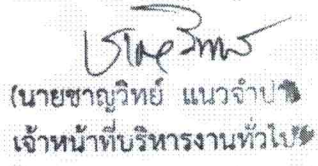 (นายชาญวิทย์ แนวจำปา
เจ้าหน้าที่บริหารงานทั่วไป